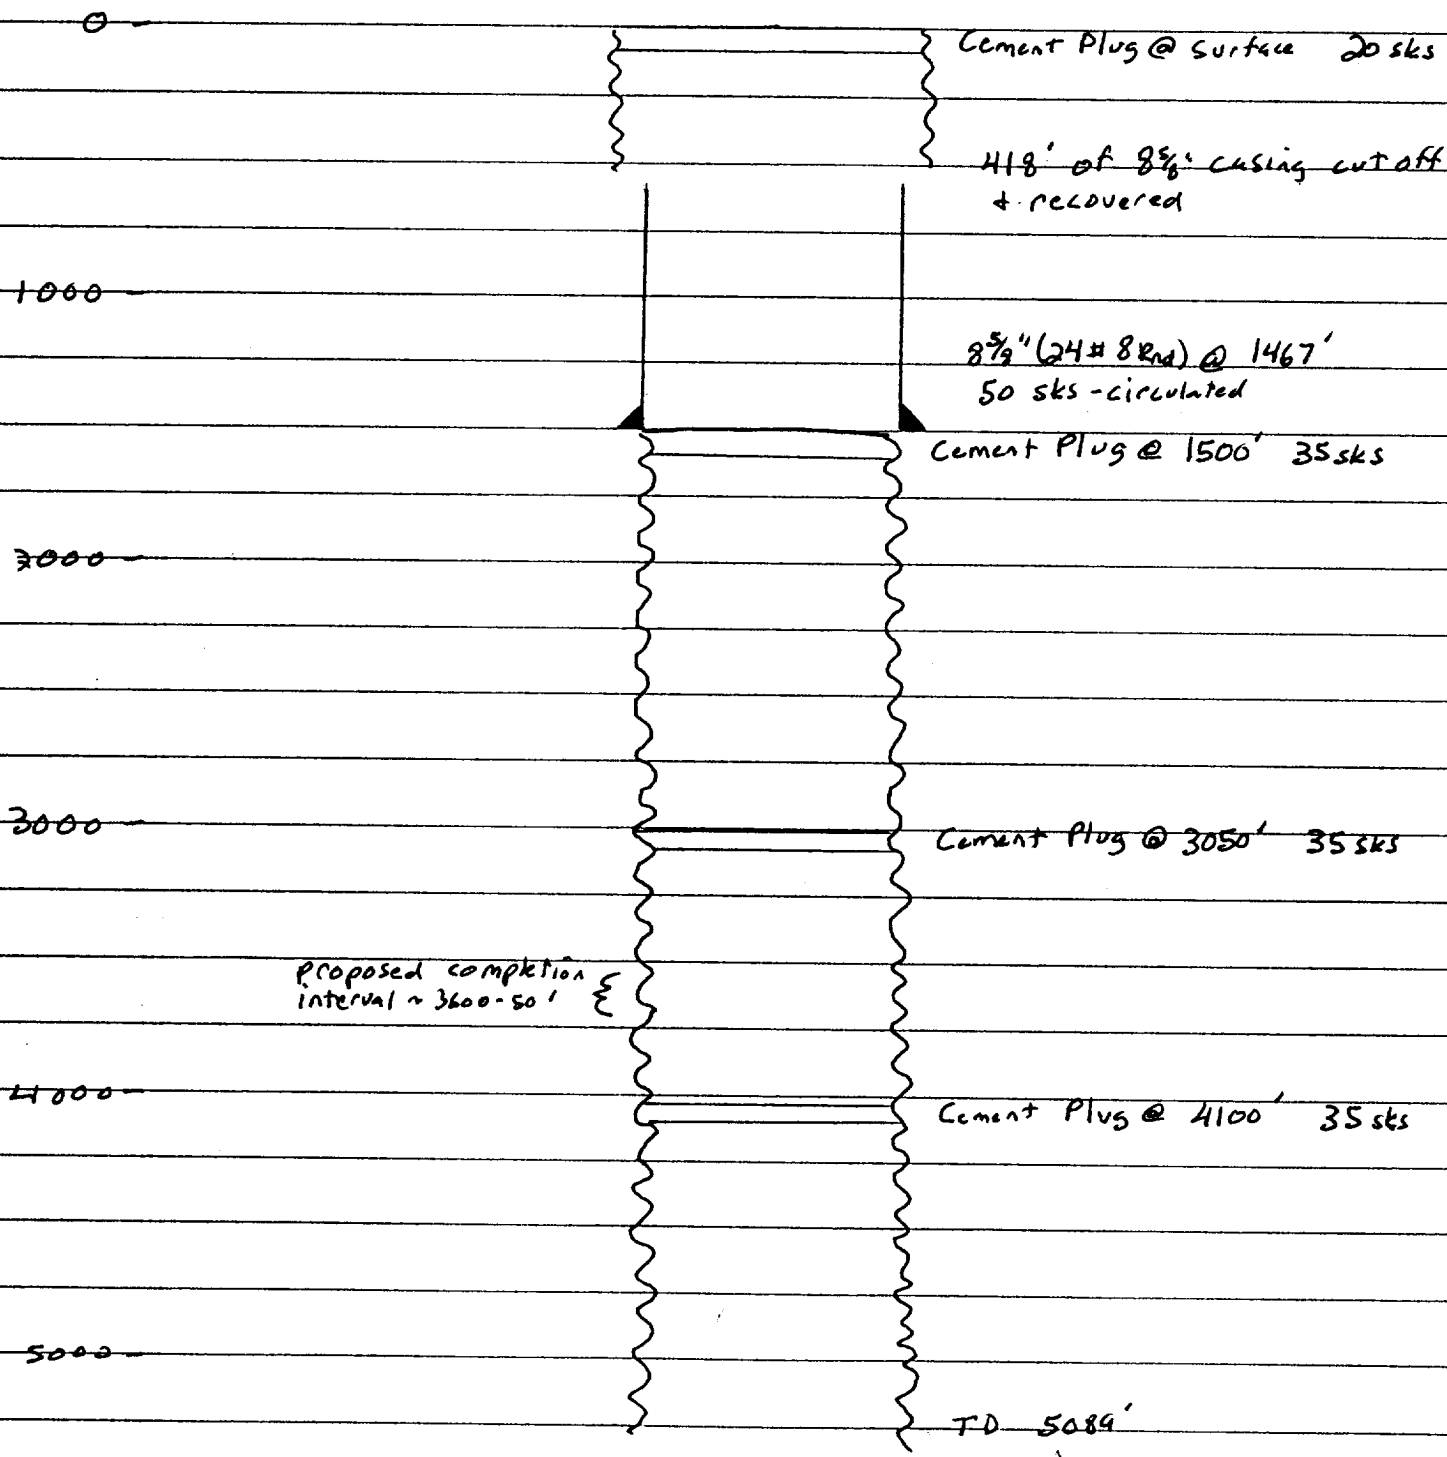 0 -
Cement Plug @ surface 20 sks
418' of 8 5/8" casing cut off
+ recovered
1000 -
8 5/8" (24# 8 Rnd) @ 1467'
50 sks - circulated
Cement Plug @ 1500' 35 sks
2000 -
3000 -
Cement Plug @ 3050' 35 sks
proposed completion
interval ~ 3600-50'
4000 -
Cement Plug @ 4100' 35 sks
5000 -
TD 5089'